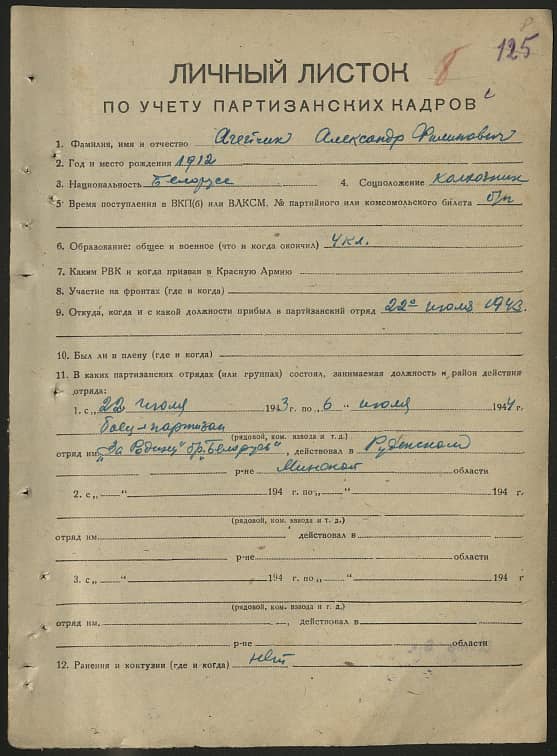 8 125
ЛИЧНЫЙ ЛИСТОК
ПО УЧЕТУ ПАРТИЗАНСКИХ КАДРОВ
1. Фамилия, имя и отчество Агейчик Александр Филипович
2. Год и место рождения 1912
3. Национальность Белорусс 4. Соцположение колхозник
5. Время поступления в ВКП(б) или ВЛКСМ, № партийного или комсомольского билета б/п
6. Образование: общее и военное (что и когда окончил) 4 кл.
7. Каким РВК и когда призван в Красную Армию
8. Участие на фронтах (где и когда)
9. Откуда, когда и с какой должности прибыл в партизанский отряд 22го июля 1943.
10. Был ли в плену (где и когда)
11. В каких партизанских отрядах (или группах) состоял, занимаемая должность и район действия
отряда:
1. с „22 июля 1943 г. по „6“ июля 1944 г.
боец-партизан
(рядовой, ком. взвода и т. д.)
отряд им. „За Родину“ бр. „Беларусь“, действовал в Руденском
р-не Минской области
2. с „ “ 194 г. по „ “ 194 г.
(рядовой, ком. взвода и т. д.)
отряд им. действовал в
р-не области
3. с „ “ 194 г. по „ “ 194 г
(рядовой, ком. взвода и т. д.)
отряд им. , действовал в
р-не области
12. Ранения и контузии (где и когда) нет